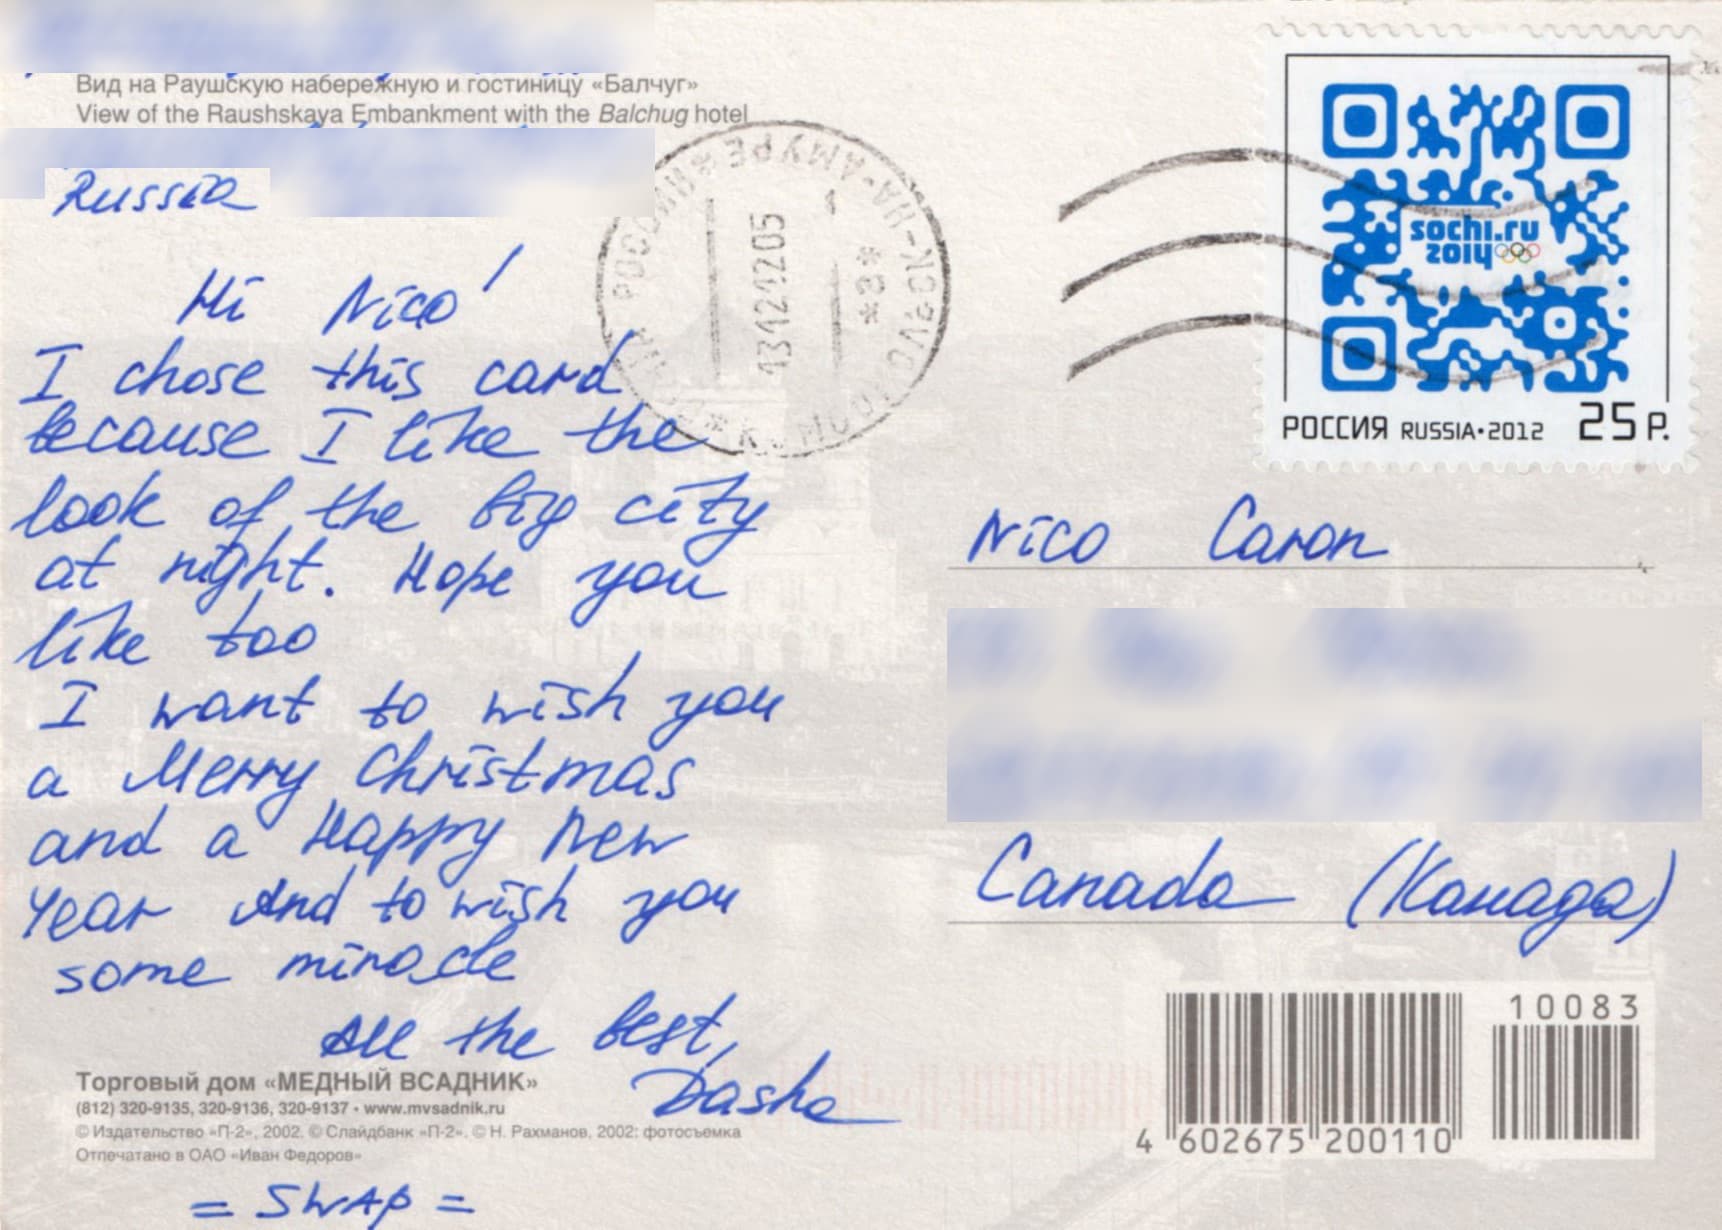 Вид на Раушскую набережную и гостиницу «Балчуг»
View of the Raushskaya Embankment with the Balchug hotel
Russia
Hi Nico!
I chose this card
because I like the
look of the big city
at night. Hope you
like too
I want to wish you
a Merry Christmas
and a Happy New
Year And to wish you
some miracle
All the best,
Dasha
Торговый дом «МЕДНЫЙ ВСАДНИК»
(812) 320-9135, 320-9136, 320-9137 • www.mvsadnik.ru
© Издательство «П-2», 2002. © Слайдбанк «П-2». © Н. Рахманов, 2002: фотосъемка
Отпечатано в ОАО «Иван Федоров»
= SWAP =
НА-АМУРЕ
1312121205
*8*
sochi.ru
2014
РОССИЯ RUSSIA•2012 25 Р.
Nico Caron
Canada (Канада)
10083
4 602675 200110